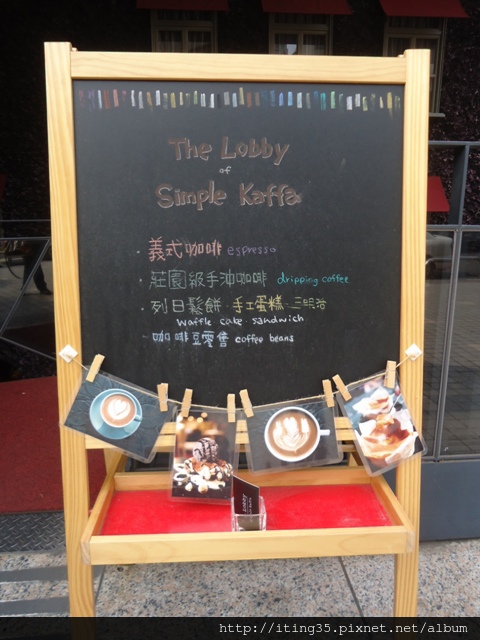 The Lobby
of
Simple Kaffa
· 義式咖啡 espresso
· 莊園級手沖咖啡 dripping coffee
· 列日鬆餅 · 手工蛋糕 · 三明治
waffle cake sandwich
· 咖啡豆零售 coffee beans
http://iting35.pixnet.net/album